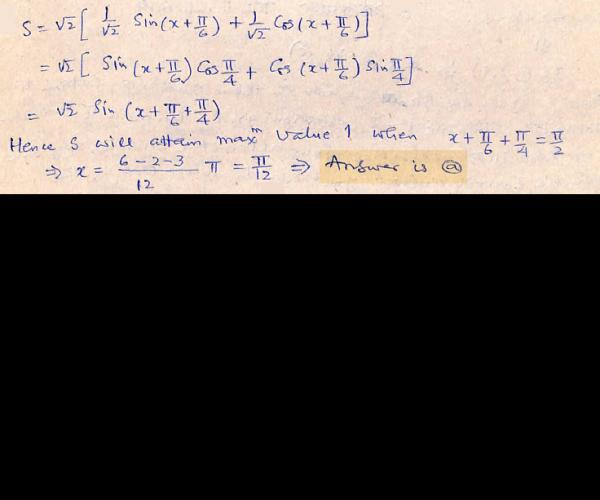 S = √2 [ 1/√2 Sin(x+π/6) + 1/√2 Cos(x+π/6) ]
= √2 [ Sin (x+π/6) Cos π/4 + Cos (x+π/6) Sin π/4 ]
= √2 Sin (x+π/6+π/4)
Hence S will attain maxᵐ value 1 when x+π/6+π/4=π/2
⇒ x = (6-2-3)/12 π = π/12 ⇒ Answer is ⓐ